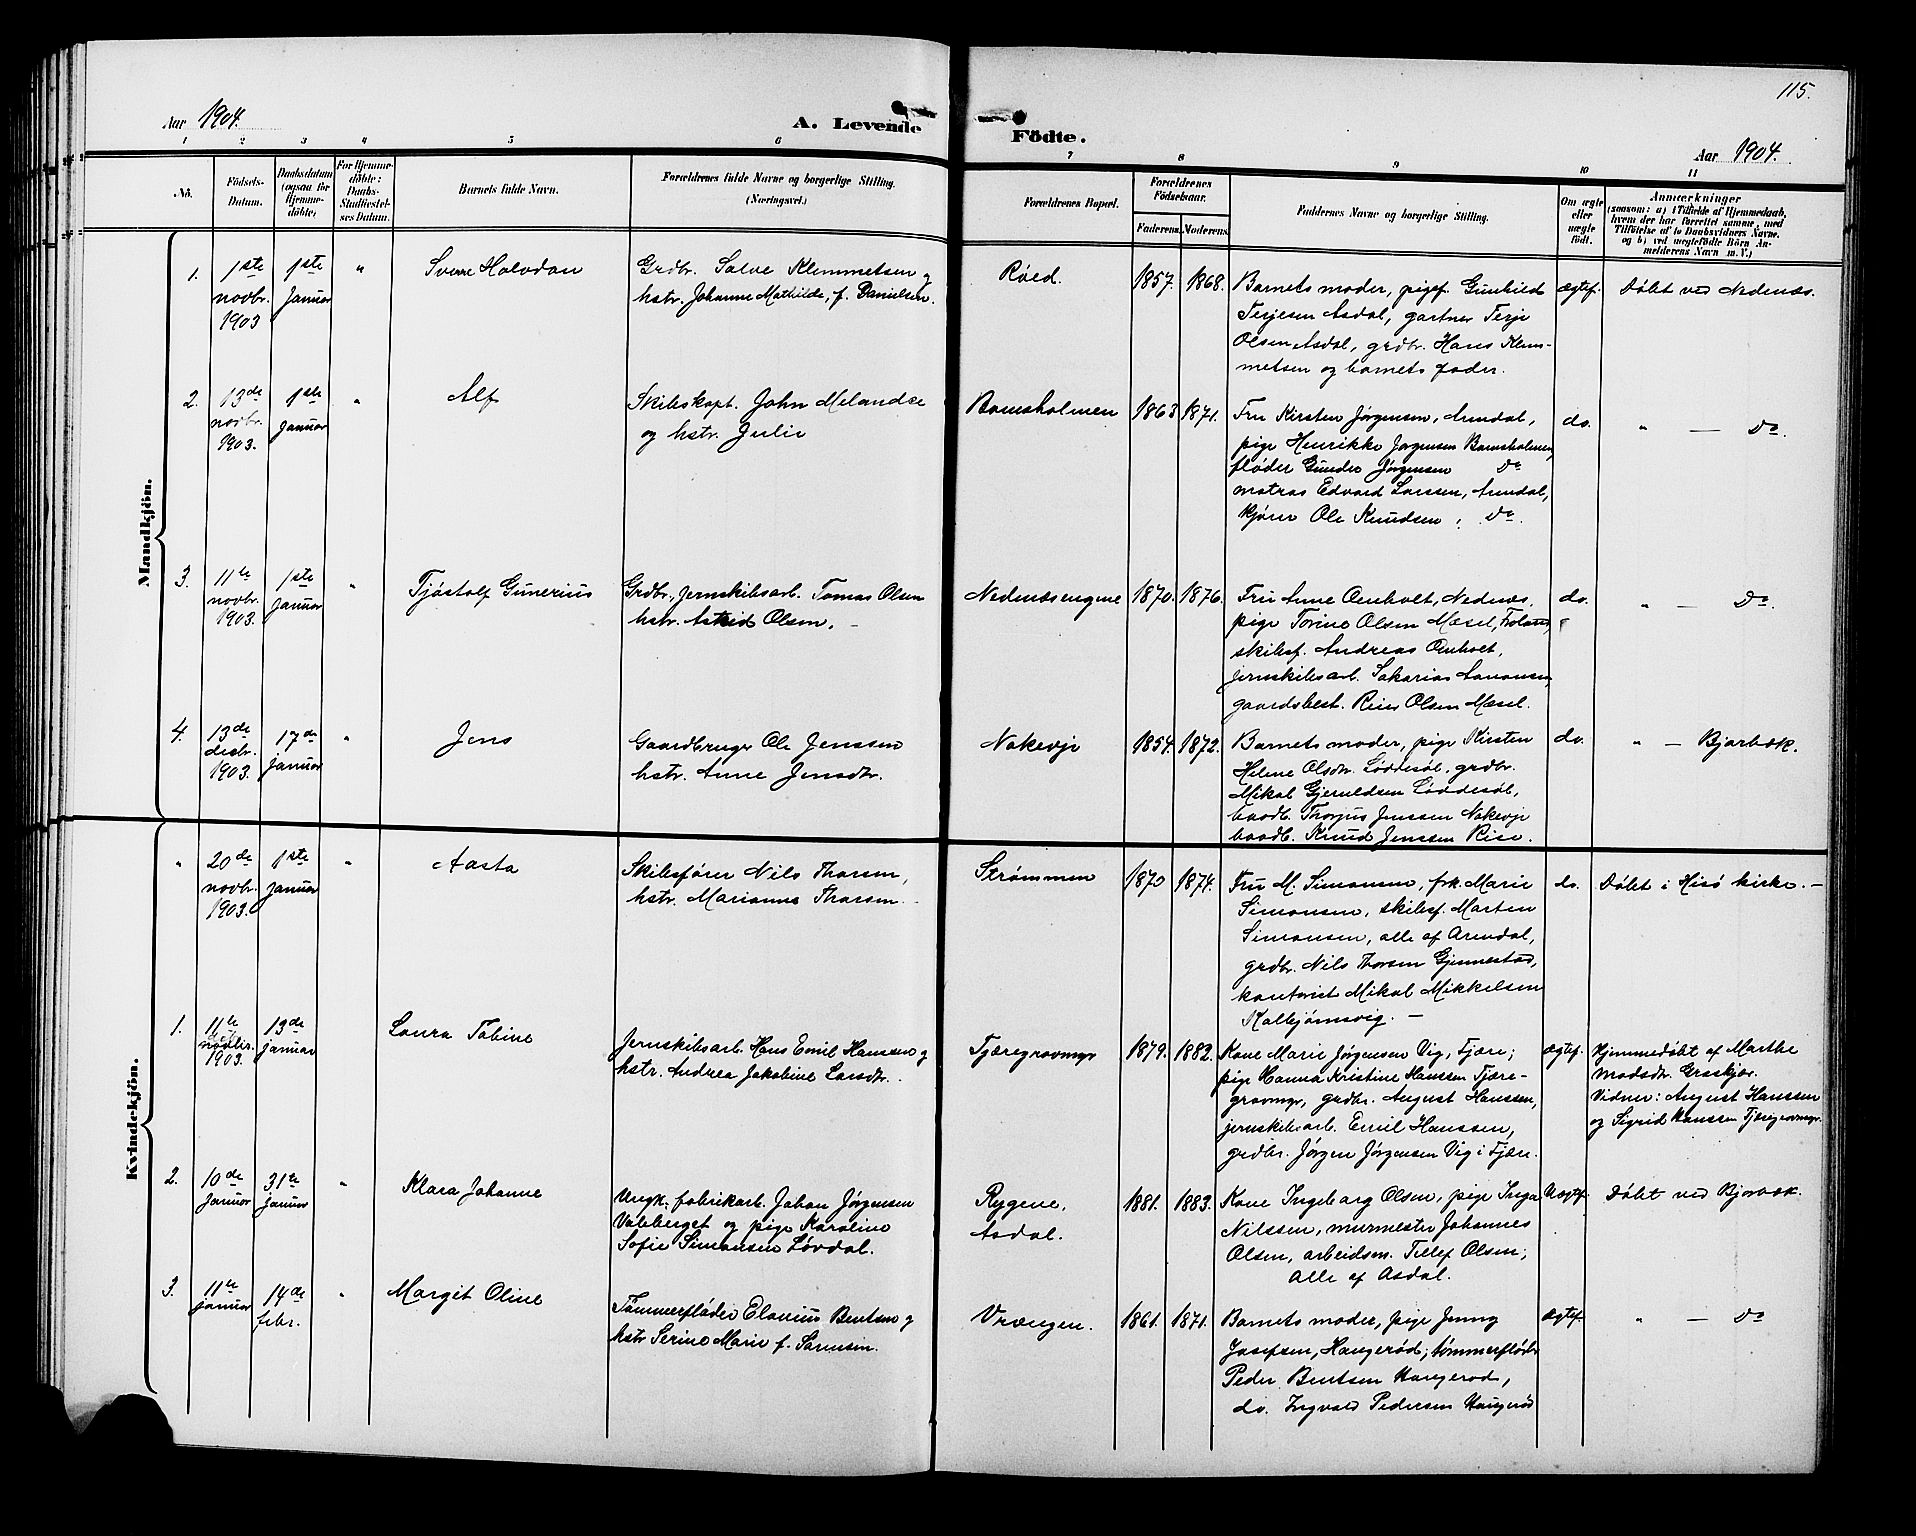 115.
Aar 1904.
A. Levende
Födte.
Aar 1904.
1 2 3 4 5 6 7 8 9 10 11
Nö.
Födsels-
Datum.
Daabsdatum
(ogsaa for
Hjemme-
döbte;
For Hjemme-
döbte:
Daabs-
Stadfæstel-
ses Datum.
Barnets fulde Navn.
Forældrenes fulde Navne og borgerlige Stilling.
(Næringsvei.)
Forældrenes Bopæl.
Forældrenes
Födselsaar.
Faderens. Moderens.
Faddernes Navne og borgerlige Stilling.
Om ægte
eller
uægte
födt.
Anmærkninger
(saasom: a) i Tilfælde af Hjemmedaab,
hvem der har forrettet samme, med
Tilföielse af to Daabsvidners Navne.
og b) ved uægtefödte Börn An-
melderens Navn m. V.)
Mandkjön.
1.
1ste
novbr.
1903
1ste
Januar
"
Sverre Halvdan
Grdbr. Salve Klemmetsen og
hstr. Johanne Mathilde, f. Danielsen.
Røed.
1857. 1868.
Barnets moder, pigef. Gunhild
Terjesen Asdal, gartner Terje
Olsen Asdal, grdbr. Hans Klem-
metsen og barnets fader.
ægtef.
Døbt ved Nedenæs.
2.
13de
novbr.
1903.
1ste
Januar
"
Alf
Skibskapt. John Melandse
og hstr. Julie
Bomsholmen
1863 1871.
Fru Kirsten Jørgensen, Arendal,
pige Henrikke Jørgensen Bomsholmen,
fløder Gunder Jørgensen do
matros Edvard Larssen, Arendal,
kjører Ole Knudsen, do.
do.
" — Do.
3.
11te
novbr.
1903.
1ste
Januar
"
Tjøstolf Gunerius
Grdbr., jernskibsarb. Tomas Olsen
hstr. Astrid Olsen.
Nedenæsengene
1870. 1876.
Fru Anne Omholt, Nedenæs.
pige Torine Olsen Mæsel, Froland,
skibsf. Andreas Omholt,
jernskibsarb. Sakarias Aanonsen,
gaardsbest. Reier Olsen Mæsel.
do.
" — Do.
4.
13de
desbr.
1903.
17de
Januar
"
Jens
Gaardbruger Ole Jenssen
hstr. Anne Jensdtr.
Nakevje
1854. 1872.
Barnets moder, pige Kirsten
Helene Olsdtr. Løddesøl, grdbr.
Mikal Gjeruldsen Løddesøl,
baadb. Thorjus Jenssen Nakevje
baadb. Knud Jenssen Rise.
do.
" — Bjorbæk.
Kvindekjön.
"
20de
novbr.
1903.
1ste
Januar
"
Aasta
Skibsfører Nils Thorsen,
hstr. Marianne Thorsen.
Strømmen
1870 1874.
Fru M. Simonsen, frk. Marie
Simonsen, skibsf. Morten
Simonsen, alle af Arendal,
grdbr. Nils Thorsen Gjennestad,
kontorist Mikal Mikkelsen
Kolbjørnsvig. —
do.
Døbt i Hisø kirke. —
1.
11te
novbr.
1903.
13de
januar
Laura Tobine
Jernskibsarb. Hans Emil Hanssen og
hstr. Andrea Jakobine Larsdtr.
Tjæregravmyr
1879. 1882.
Kone Marie Jørgensen Vig, Fjære;
pige Hanna Kristine Hanssen Tjære-
gravmyr, grdbr. August Hanssen,
jernskibsarb. Emil Hanssen,
grdbr. Jørgen Jørgensen Vig i Fjære.
Ægtef.
Hjemmedøbt af Marthe
Madsdtr. Græskjær.
Vidner: August Hanssen
og Sigrid Hanssen Tjæregravmyr.
2.
10de
Januar
31te
januar
"
Klara Johanne
Ungk. fabrikarb. Johan Jørgensen
Valeberget og pige Karoline
Sofie Simonsen Løvdal.
Rygene,
Asdal.
1881. 1883.
Kone Ingeborg Olsen, pige Inga
Nilssen, murmester Johannes
Olsen, arbeidsm. Tellef Olsen;
alle af Asdal.
Uægtef.
Døbt ved Bjorbæk.
3.
11te
januar
14de
febr.
"
Margit Oline
Tømmerfløder Elovius Bentsen og
hstr. Serine Marie f. Sørensen.
Vrængen.
1861. 1871.
Barnets moder, pige Jenny
Josefsen, Haugerød; tømmerfløder
Peder Bentsen Haugerød,
do. Ingvald Pedersen Haugerød
Ægtef.
" — Do